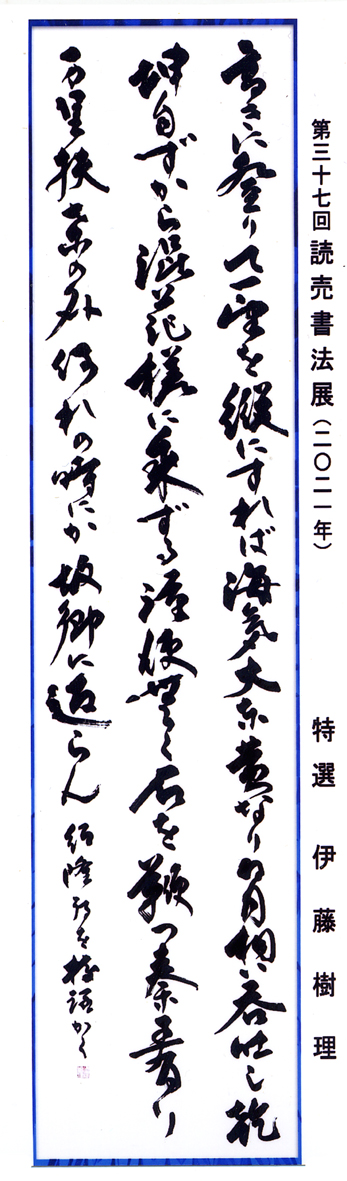 第三十七回読売書法展(二〇二一年) 特選 伊藤樹理
高さに登りて一望を縦にすれば海気大東黄なり日月相い呑吐し乾
坤自ずから混茫槎に乗ずる漢使無く石を鞭つ秦王有り
万里扶桑の外何れの時にか故郷に返らん